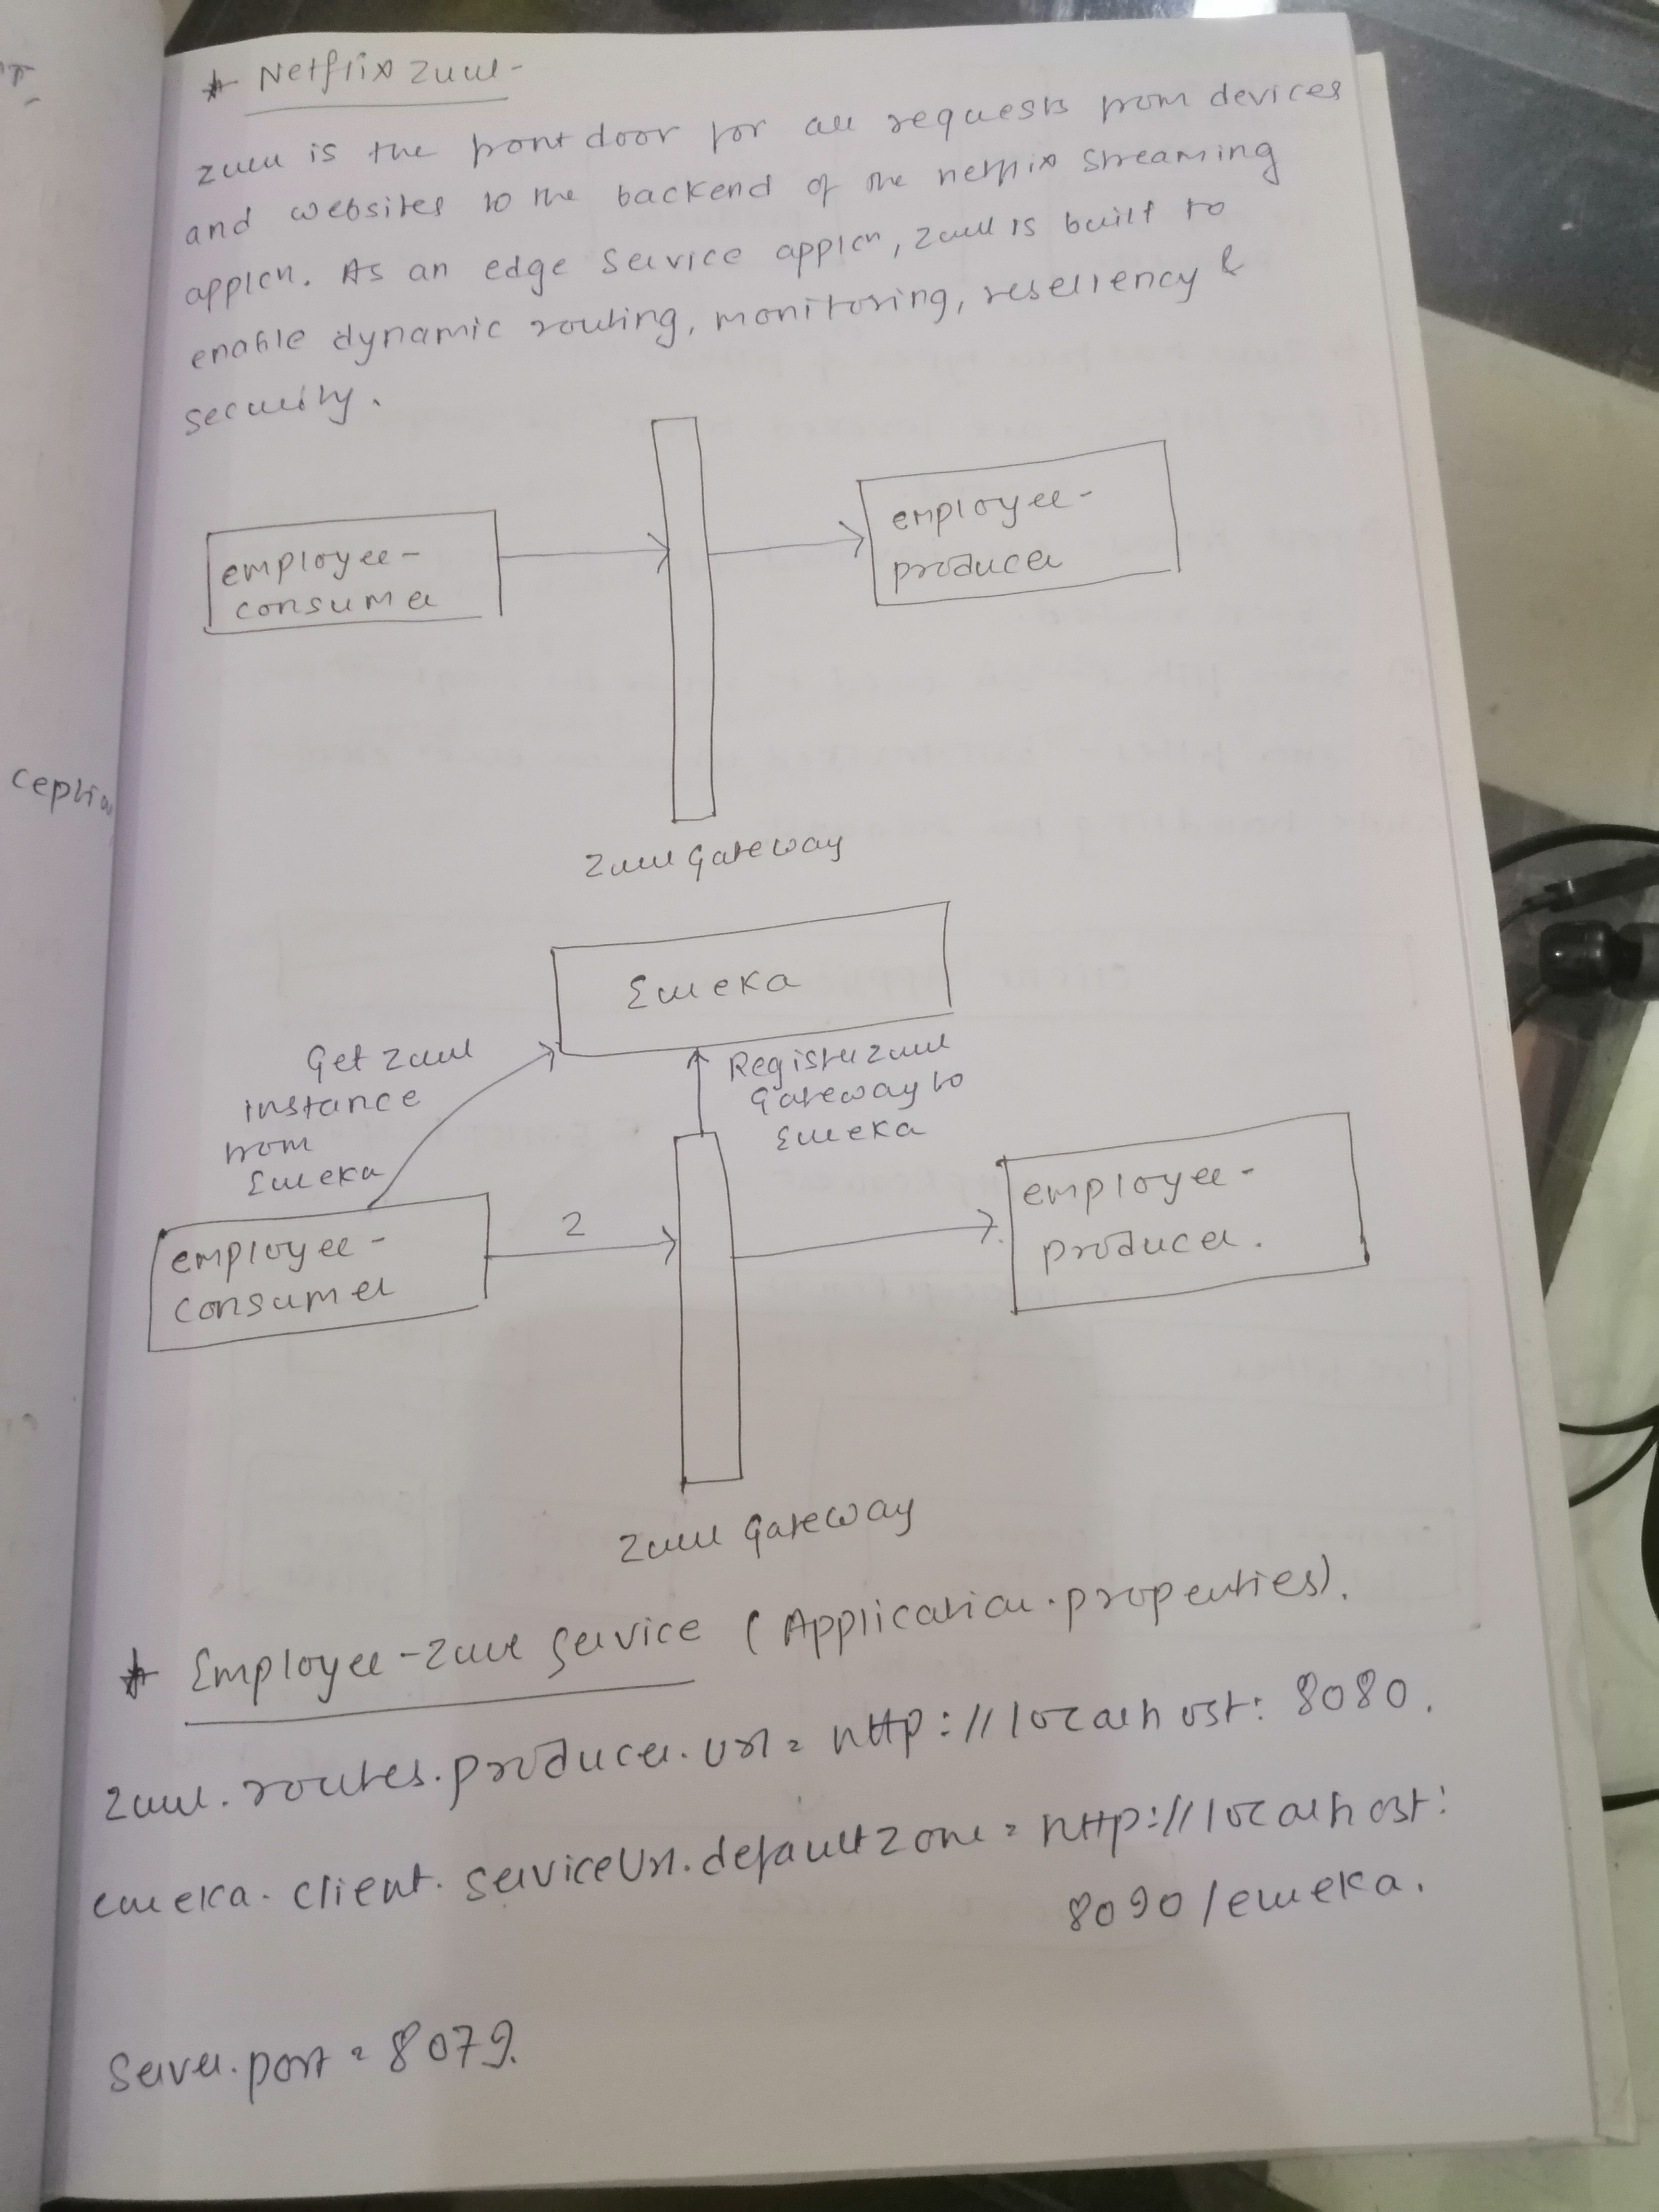 * Netflix zuul -
zuul is the front door for all requests from devices
and websites to the backend of the netflix streaming
applcn. As an edge service applcn, zuul is built to
enable dynamic routing, monitoring, reseliency &
security.
employee-
consumer
employee-
producer
zuul Gateway
Eureka
Get zuul
instance
from
Eureka
Register zuul
Gateway to
Eureka
employee-
consumer
2
employee-
producer.
zuul Gateway
* Employee-zuul service (Application.properties).
zuul.routes.producer.url = http://localhost:8080.
eureka.client.serviceUrl.defaultzone = http://localhost:
8090/eureka.
Server.port = 8079.